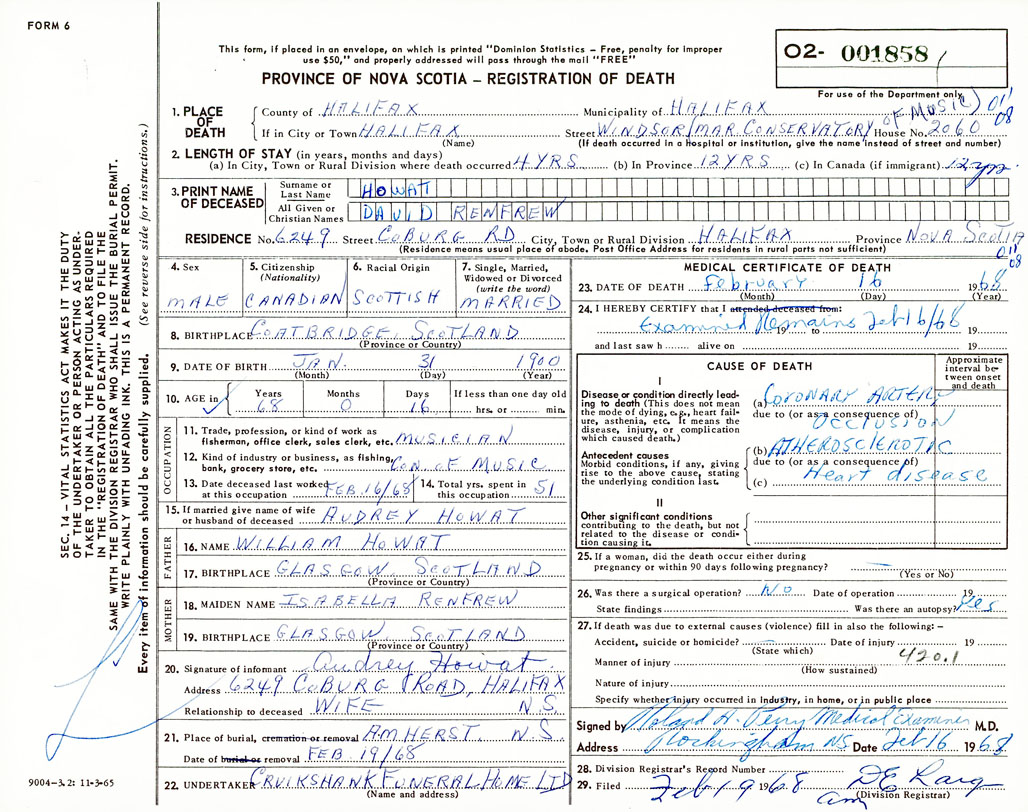 FORM 6
This form, if placed in an envelope, on which is printed "Dominion Statistics – Free, penalty for improper
use $50," and properly addressed will pass through the mail "FREE"
PROVINCE OF NOVA SCOTIA – REGISTRATION OF DEATH
O2- 001858
For use of the Department only
011
08
1. PLACE OF DEATH
County of HALIFAX Municipality of HALIFAX
If in City or Town HALIFAX Street WINDSOR (MAR CONSERVATORY OF MUSIC) House No. 2060
(Name) (If death occurred in a Hospital or institution, give the name instead of street and number)
2. LENGTH OF STAY (in years, months and days)
(a) In City, Town or Rural Division where death occurred 4 YRS (b) In Province 12 YRS (c) In Canada (if immigrant) 12 yrs
3. PRINT NAME OF DECEASED
Surname or Last Name HOWAT
All Given or Christian Names DAVID RENFREW
RESIDENCE No. 6249 Street COBURG RD City, Town or Rural Division HALIFAX Province NOVA SCOTIA
(Residence means usual place of abode. Post Office Address for residents in rural parts not sufficient)
011
08
4. Sex MALE
5. Citizenship (Nationality) CANADIAN
6. Racial Origin SCOTTISH
7. Single, Married, Widowed or Divorced (write the word) MARRIED
8. BIRTHPLACE COATBRIDGE, SCOTLAND
(Province or Country)
9. DATE OF BIRTH JAN. 31 1900
(Month) (Day) (Year)
10. AGE in Years 68 Months 0 Days 16 If less than one day old hrs. or min.
OCCUPATION
11. Trade, profession, or kind of work as
fisherman, office clerk, sales clerk, etc. MUSICIAN
12. Kind of industry or business, as fishing,
bank, grocery store, etc. CON. OF MUSIC
13. Date deceased last worked at this occupation FEB 16/68 14. Total yrs. spent in this occupation 51
15. If married give name of wife or husband of deceased AUDREY HOWAT
FATHER
16. NAME WILLIAM HOWAT
17. BIRTHPLACE GLASGOW, SCOTLAND
(Province or Country)
MOTHER
18. MAIDEN NAME ISABELLA RENFREW
19. BIRTHPLACE GLASGOW, SCOTLAND
(Province or Country)
20. Signature of informant Audrey Howat
Address 6249 COBURG ROAD, HALIFAX
Relationship to deceased WIFE N.S.
21. Place of burial, cremation or removal AMHERST N S
Date of burial or removal FEB 19/68
22. UNDERTAKER CRUIKSHANK FUNERAL HOME LTD
(Name and address)
MEDICAL CERTIFICATE OF DEATH
23. DATE OF DEATH February 16 1968
(Month) (Day) (Year)
24. I HEREBY CERTIFY that I attended deceased from:
Examined Remains Feb 16/68
19 to 19
and last saw h alive on 19
CAUSE OF DEATH
Approximate interval between onset and death
I
Disease or condition directly leading to death (This does not mean the mode of dying, e.g., heart failure, asthenia, etc. It means the disease, injury, or complication which caused death.)
(a) CORONARY ARTERY
due to (or as a consequence of)
OCCLUSION
Antecedent causes
Morbid conditions, if any, giving rise to the above cause, stating the underlying condition last.
(b) ATHEROSCLEROTIC
due to (or as a consequence of)
(c) Heart disease
II
Other significant conditions
contributing to the death, but not related to the disease or condition causing it.
25. If a woman, did the death occur either during
pregnancy or within 90 days following pregnancy?
(Yes or No)
26. Was there a surgical operation? NO Date of operation 19
State findings Was there an autopsy? Yes
27. If death was due to external causes (violence) fill in also the following: –
Accident, suicide or homicide? Date of injury 19
(State which) 420.1
Manner of injury
(How sustained)
Nature of injury
Specify whether injury occurred in Industry, in home, or in public place
Signed by Roland A. Perry Medical Examiner M.D.
Address Rockingham NS Date Feb 16 1968
28. Division Registrar's Record Number
29. Filed Feb 19 1968
(Division Registrar)
SEC. 14 – VITAL STATISTICS ACT MAKES IT THE DUTY
OF THE UNDERTAKER OR PERSON ACTING AS UNDER-
TAKER TO OBTAIN ALL THE PARTICULARS REQUIRED
IN THE "REGISTRATION OF DEATH" AND TO FILE THE
SAME WITH THE DIVISION REGISTRAR WHO SHALL ISSUE THE BURIAL PERMIT.
WRITE PLAINLY WITH UNFADING INK. THIS IS A PERMANENT RECORD.
Every item of information should be carefully supplied. (See reverse side for instructions.)
9004-3.2: 11-3-65